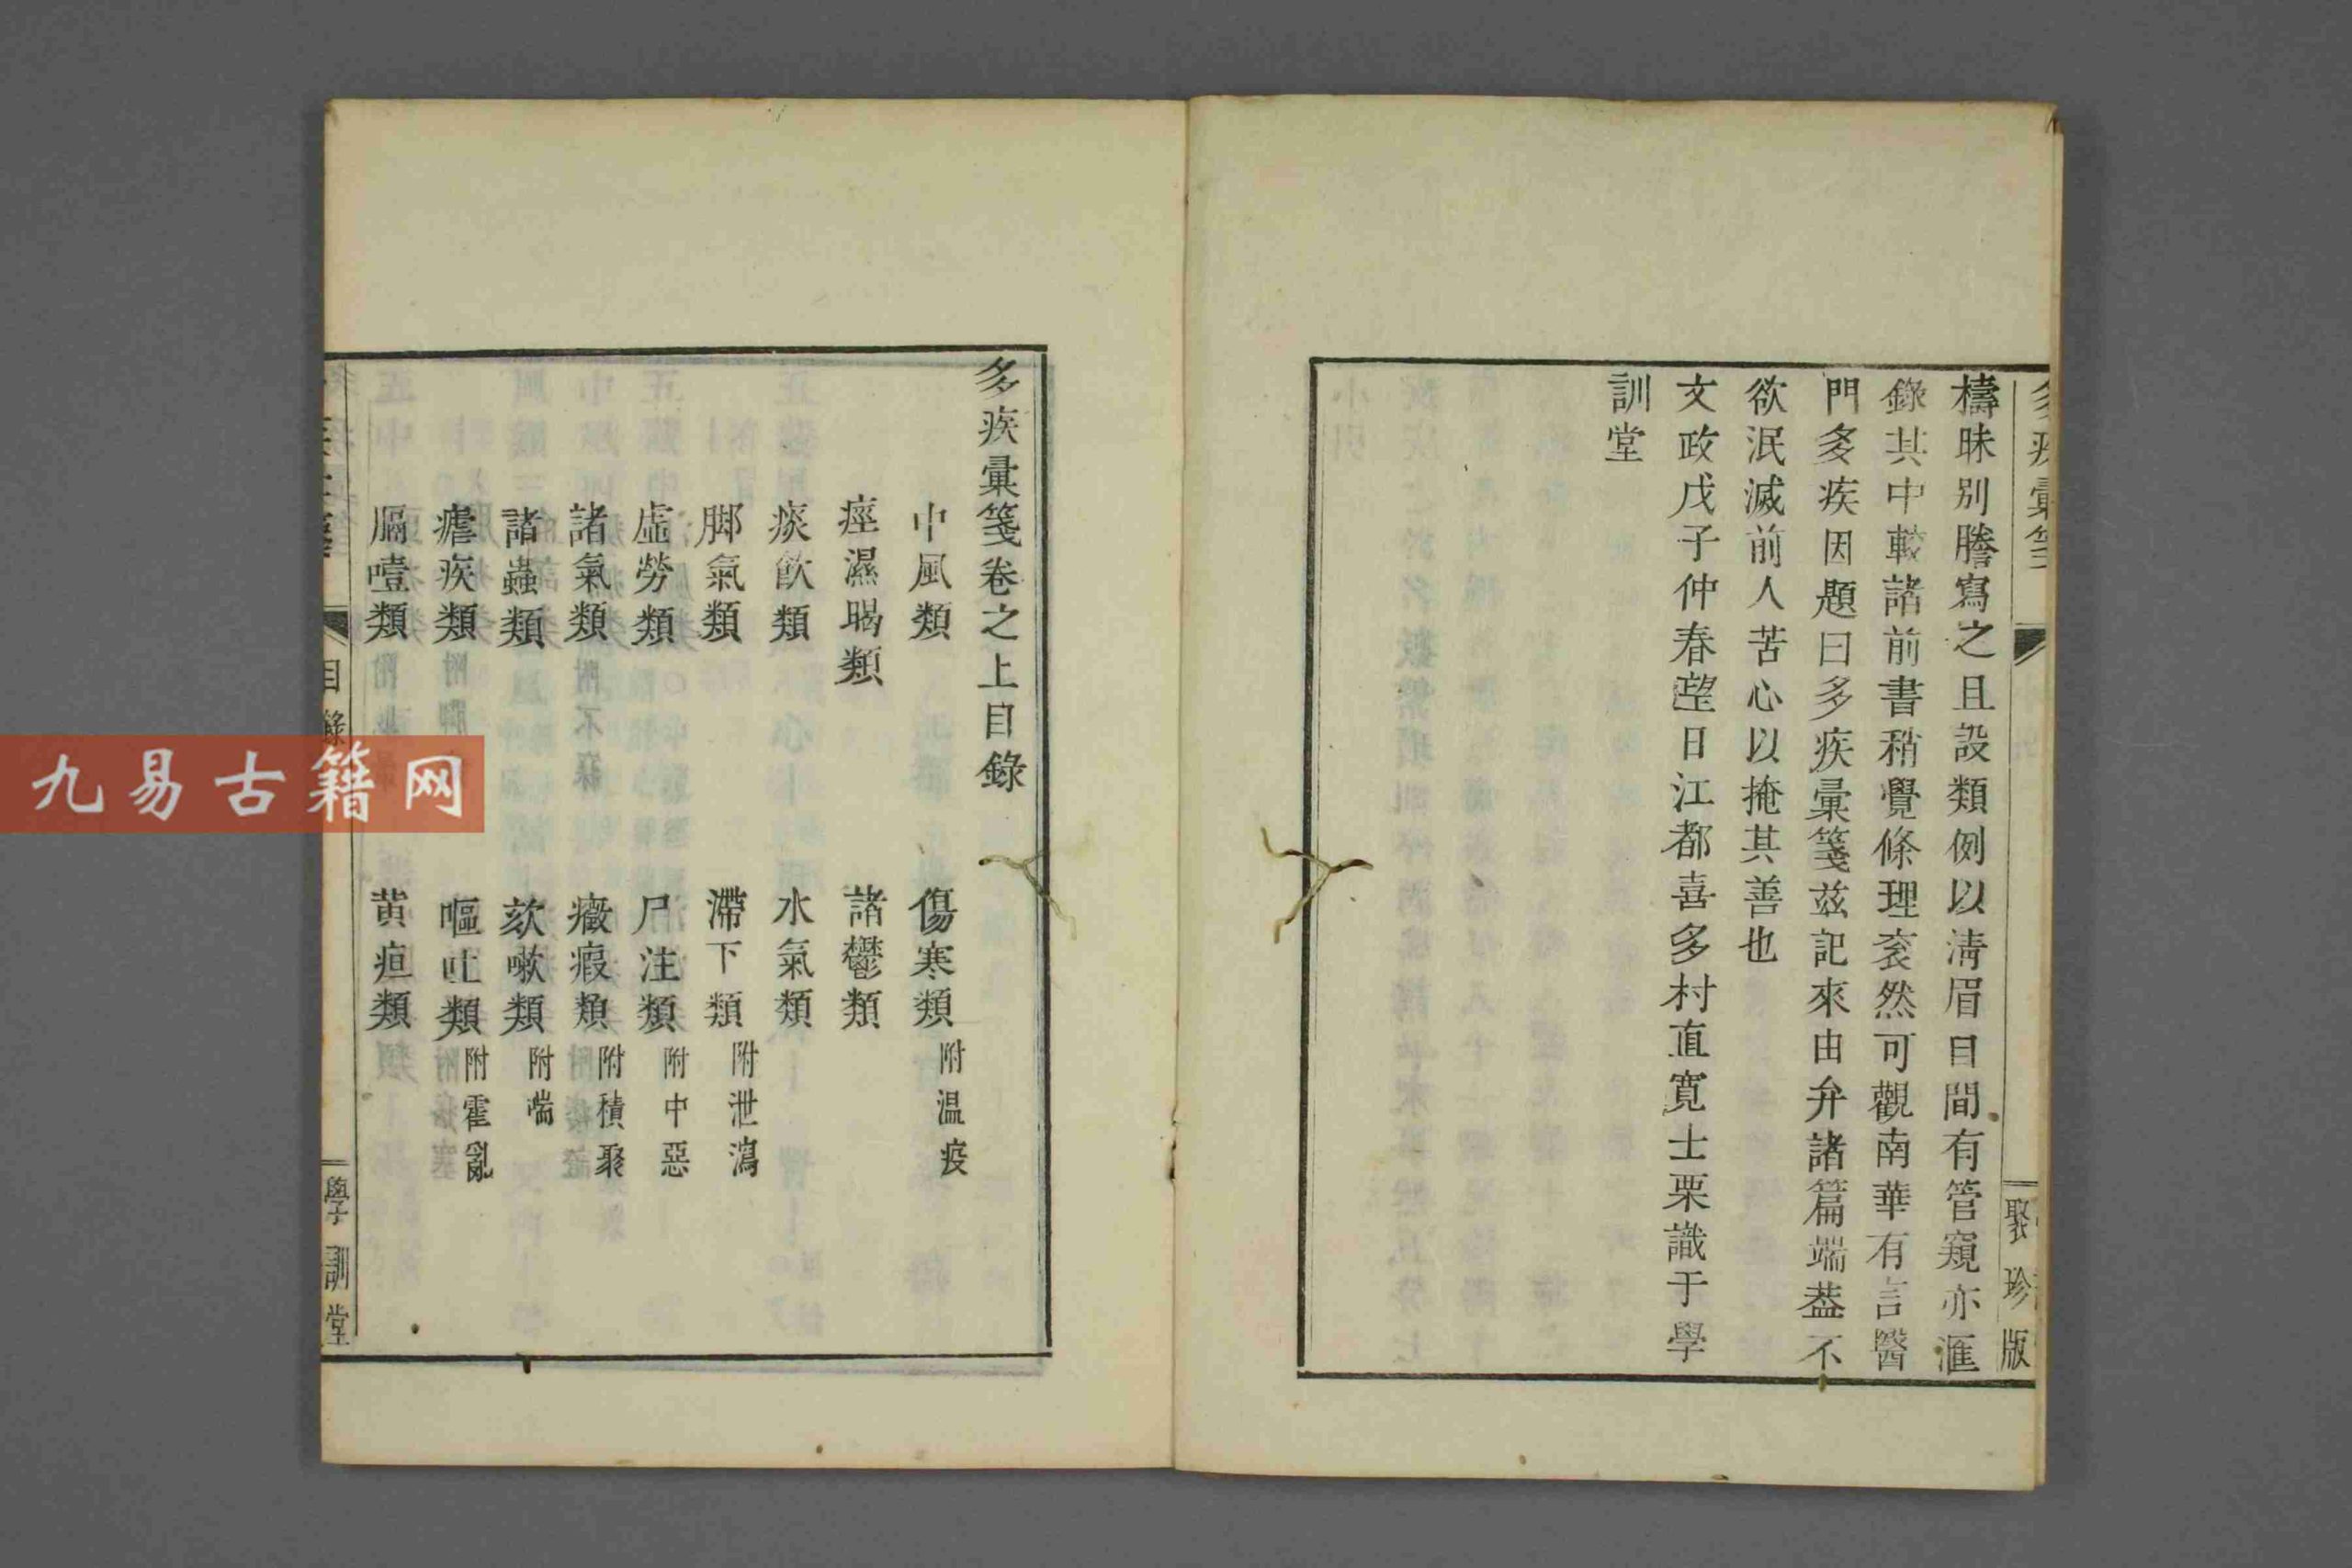 多疾彙箋
聚珍版
檮昧別謄寫之且設類例以淸眉目間有管窺亦滙
錄其中較諸前書稍覺條理衮然可觀南華有言醫
門多疾因題曰多疾彙箋玆記來由弁諸篇端葢不
欲泯滅前人苦心以掩其善也
文政戊子仲春望日江都喜多村直寬士栗識于學
訓堂
多疾彙箋卷之上目錄
中風類 傷寒類 附温疫
痙濕暍類 諸鬱類
痰飲類 水氣類
脚氣類 滯下類 附泄瀉
虛勞類 尸注類 附中惡
諸氣類 癥瘕類 附積聚
諸蟲類 欬嗽類 附喘
瘧疾類 嘔吐類 附霍亂
膈噎類 黄疸類
目錄
學訓堂
九易古籍网